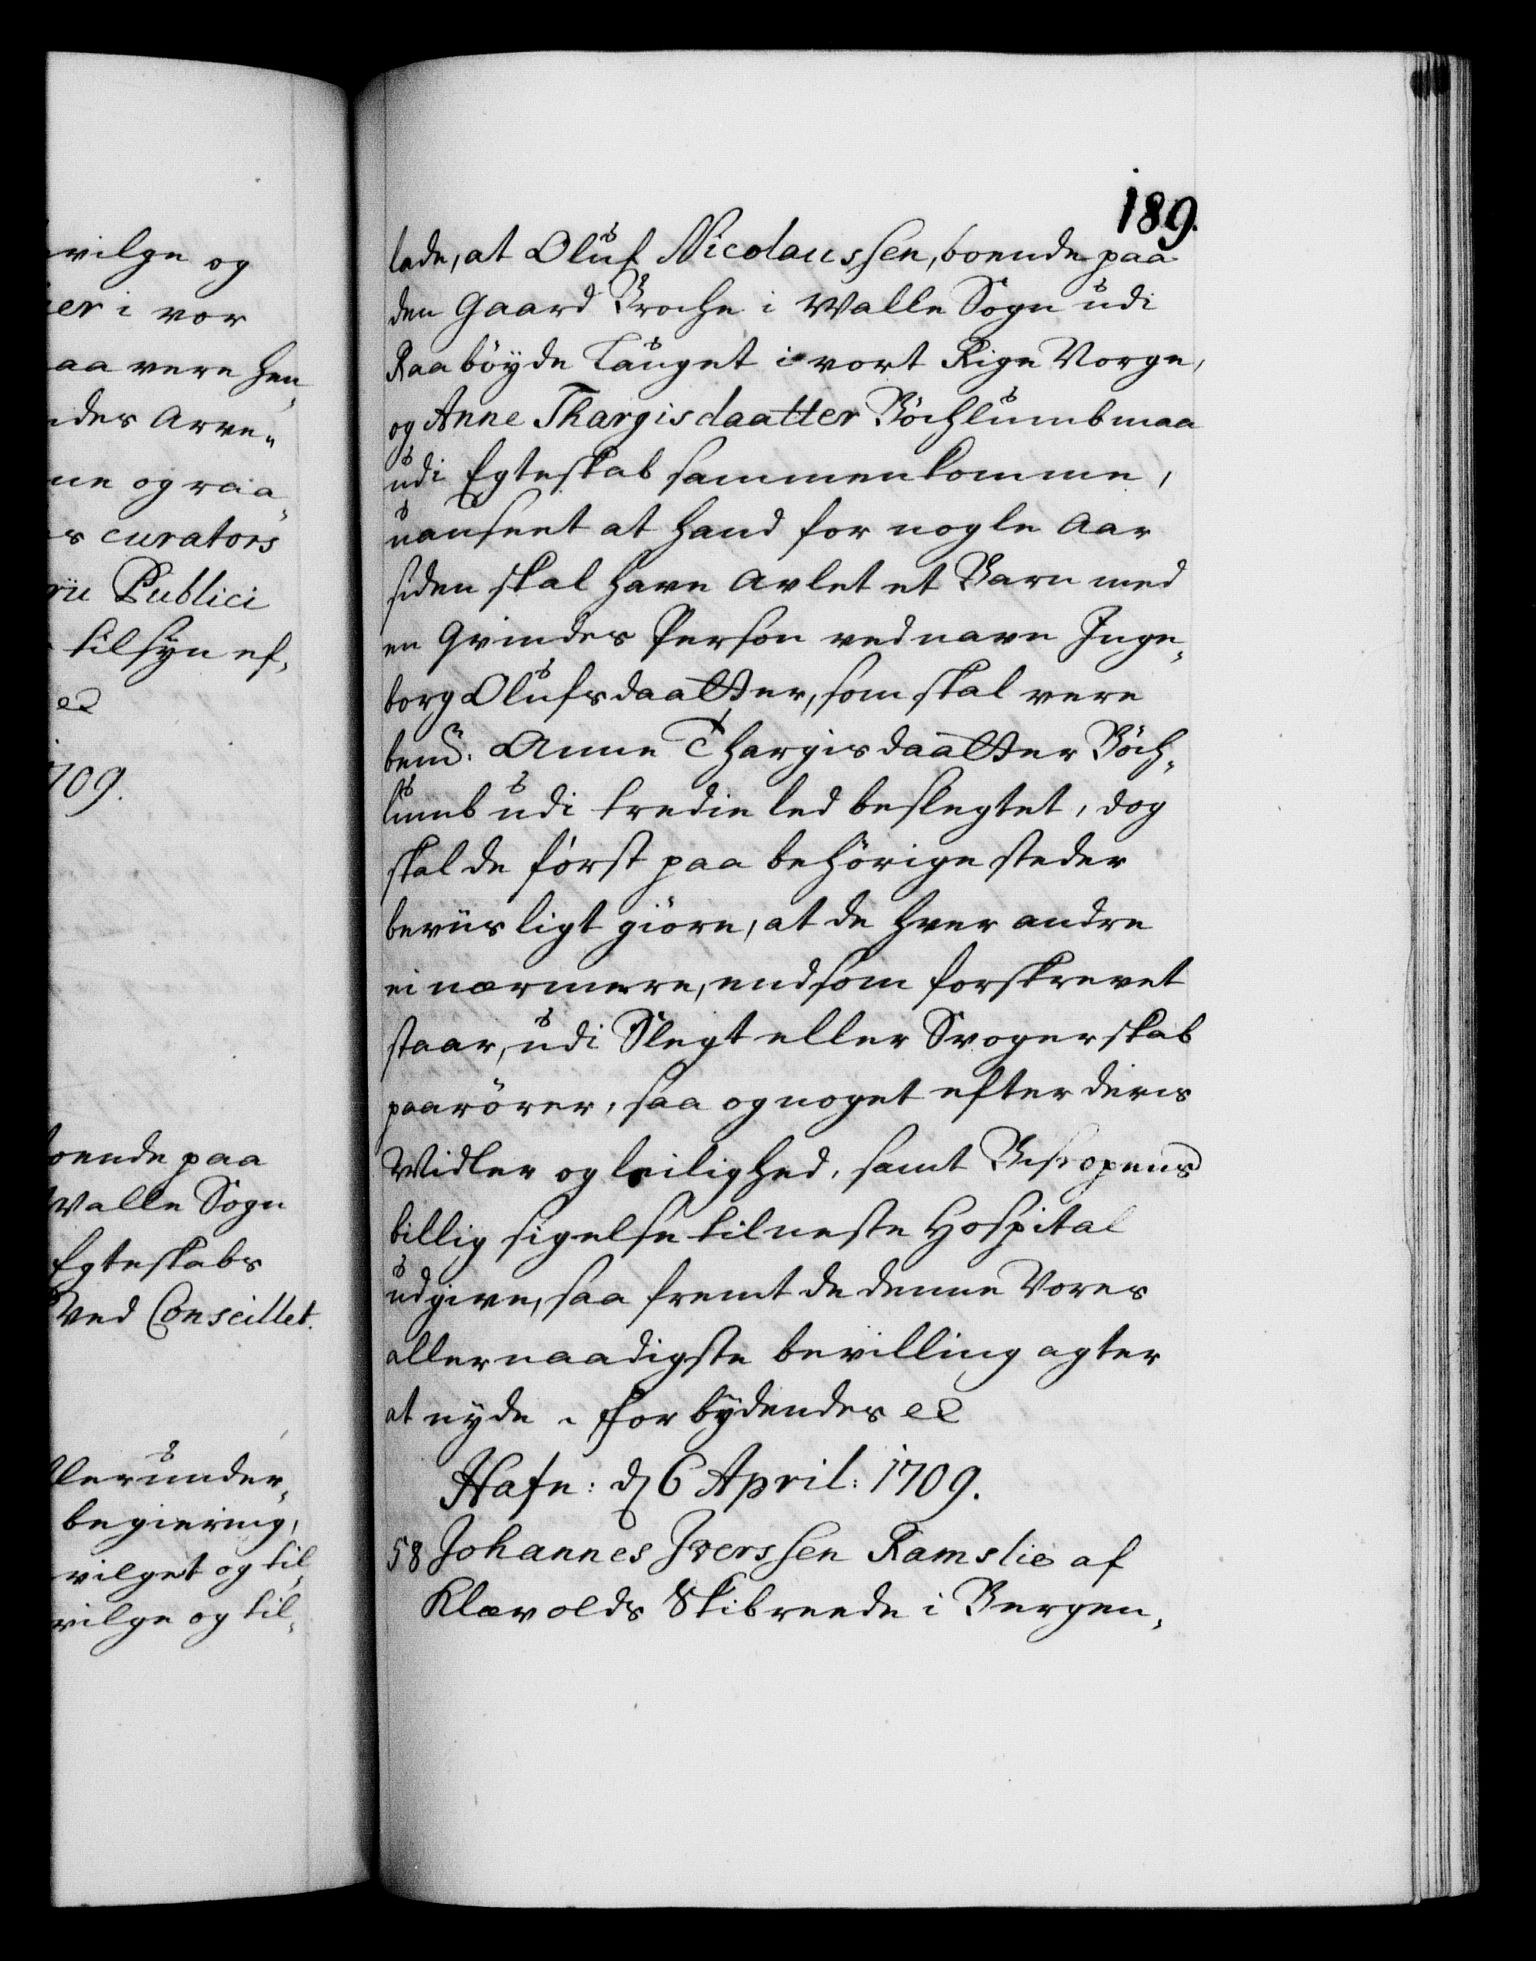 vilge og
er i vor
aa være hen¬
ndes Arve¬
ne og raa¬
s curators
rii Publici
tilsyn ef¬
ec
1709.
boende paa
Walle Sogn
Egteskabs
Ved Conseillet.
llerunder¬
begiering,
vilget og til¬
vilge og til¬
189.
lade, at Oluf Nicolaussen, boende paa
den Gaard Broche i Walle Sogn udi
Raabøyde Lauget i vort Rige Norge,
og Anne Thargisdaatter Böchlumb maa
udi Egteskab sammenkomme,
uanseet at hand for nogle Aar
siden skal have Avlet et Barn med
en Qvindes Person ved navn Inge¬
borg Olufsdaatter, som skal vere
bemte: Anne Thargisdaatter Böch¬
lumb udi tredie led beslegtet, dog
skal de först paa behörige steder
beviisligt giöre, at de hver andre
ei nærmere, end som forskrevet
staar, udi Slegt eller Svogerskab
paarörer, saa og noget efter deris
Midler og leilighed, samt Biskopens
billig sigelse til neste Hospital
udgive, saa fremt de denne Vores
allernaadigste bevilling agter
at nyde. Forbydendes ec
Hafn: d 6 April: 1709.
58 Johannes Iverssen Ramslie af
Klævolds Skibreede i Bergen¬